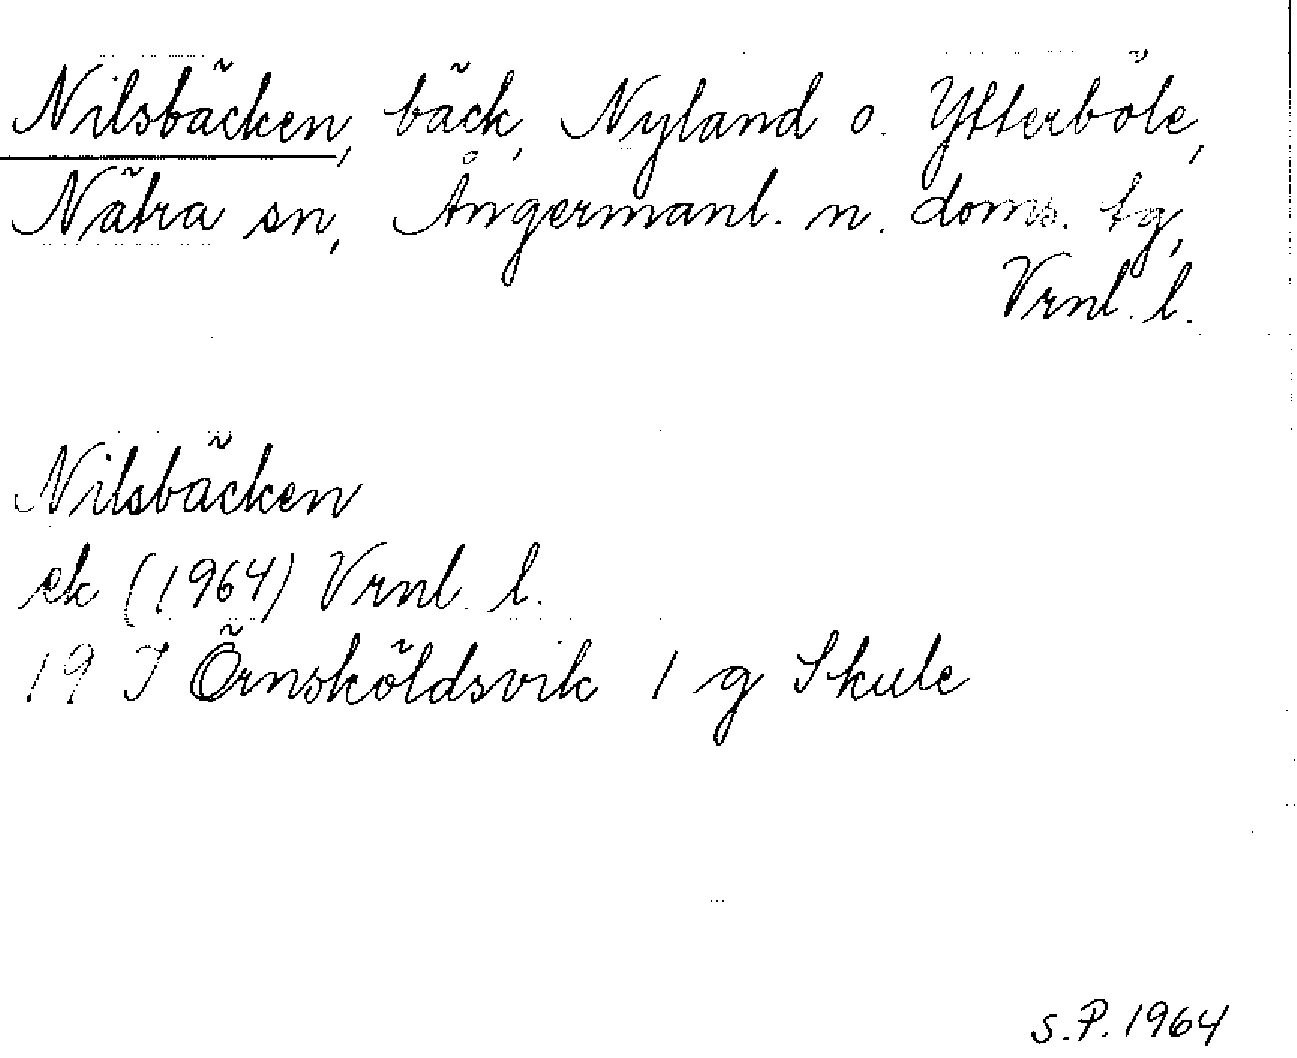 Nilsbäcken, bäck, Nyland o. Ytterböle,
Nätra sn, Ångermanl. n. doms. tg,
Vrnl. l.
Nilsbäcken
ek (1964) Vrnl. l.
19 J Örnsköldsvik 1 g Skule
S.P. 1964